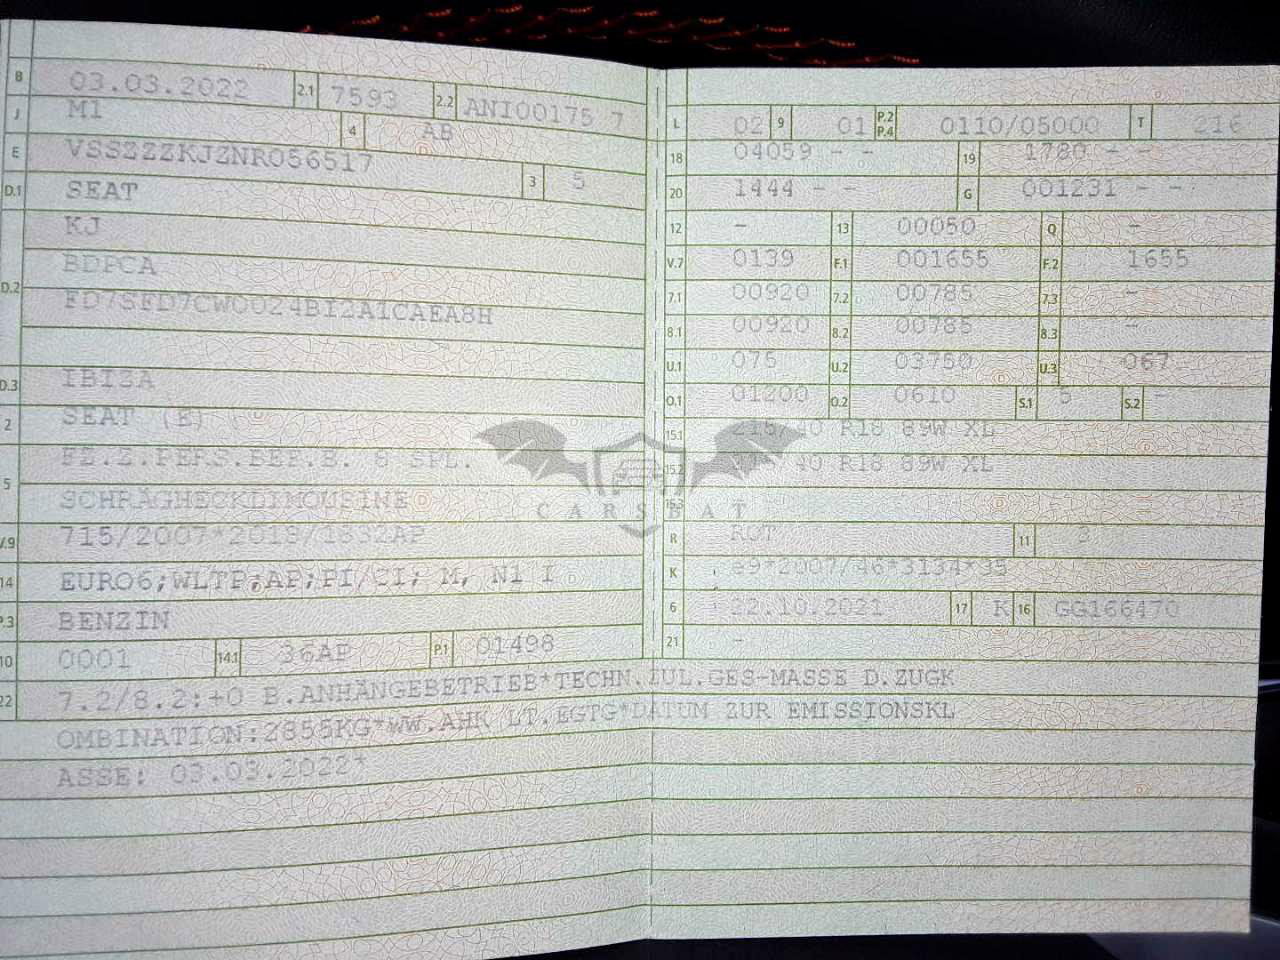 B 03.03.2022 2.1 7593 2.2 ANI00175 7
J M1 4 AB
E VSSZZZKJZNR056517 3 5
D.1 SEAT
D.2 KJ
BDPCA
FD7SFD7CW0024BI2A1CAEA8H
D.3 IBIZA
2 SEAT (E)
5 FZ.Z.PERS.BEF.B. 8 SPL.
SCHRÄGHECKLIMOUSINE
V.9 715/2007*2018/1832AP
14 EURO6;WLTP;AP;PI/CI; M, N1 I
P.3 BENZIN
10 0001 14.1 36AP P.1 01498
L 02 9 01 P.2 P.4 0110/05000 T 216
18 04059 - - 19 1780 - -
20 1444 - - G 001231 - -
12 - 13 00050 Q -
V.7 0139 F.1 001655 F.2 1655
7.1 00920 7.2 00785 7.3 -
8.1 00920 8.2 00785 8.3 -
U.1 075 U.2 03750 U.3 067
O.1 01200 O.2 0610 S.1 5 S.2 -
15.1 215/40 R18 89W XL
15.2 215/40 R18 89W XL
15.3 -
R ROT 11 3
K e9*2007/46*3134*35
6 22.10.2021 17 K 16 GG166470
21 -
22 7.2/8.2:+0 B.ANHÄNGEBETRIEB*TECHN.ZUL.GES-MASSE D.ZUGK
OMBINATION:2855KG*WW.AHK LT.EGTG*DATUM ZUR EMISSIONSKL
ASSE: 03.03.2022*
CARSBAT